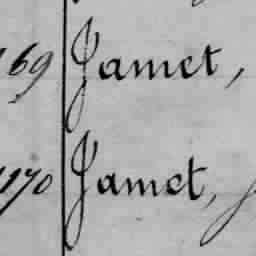 169 Jamet,
170 Jamet, J